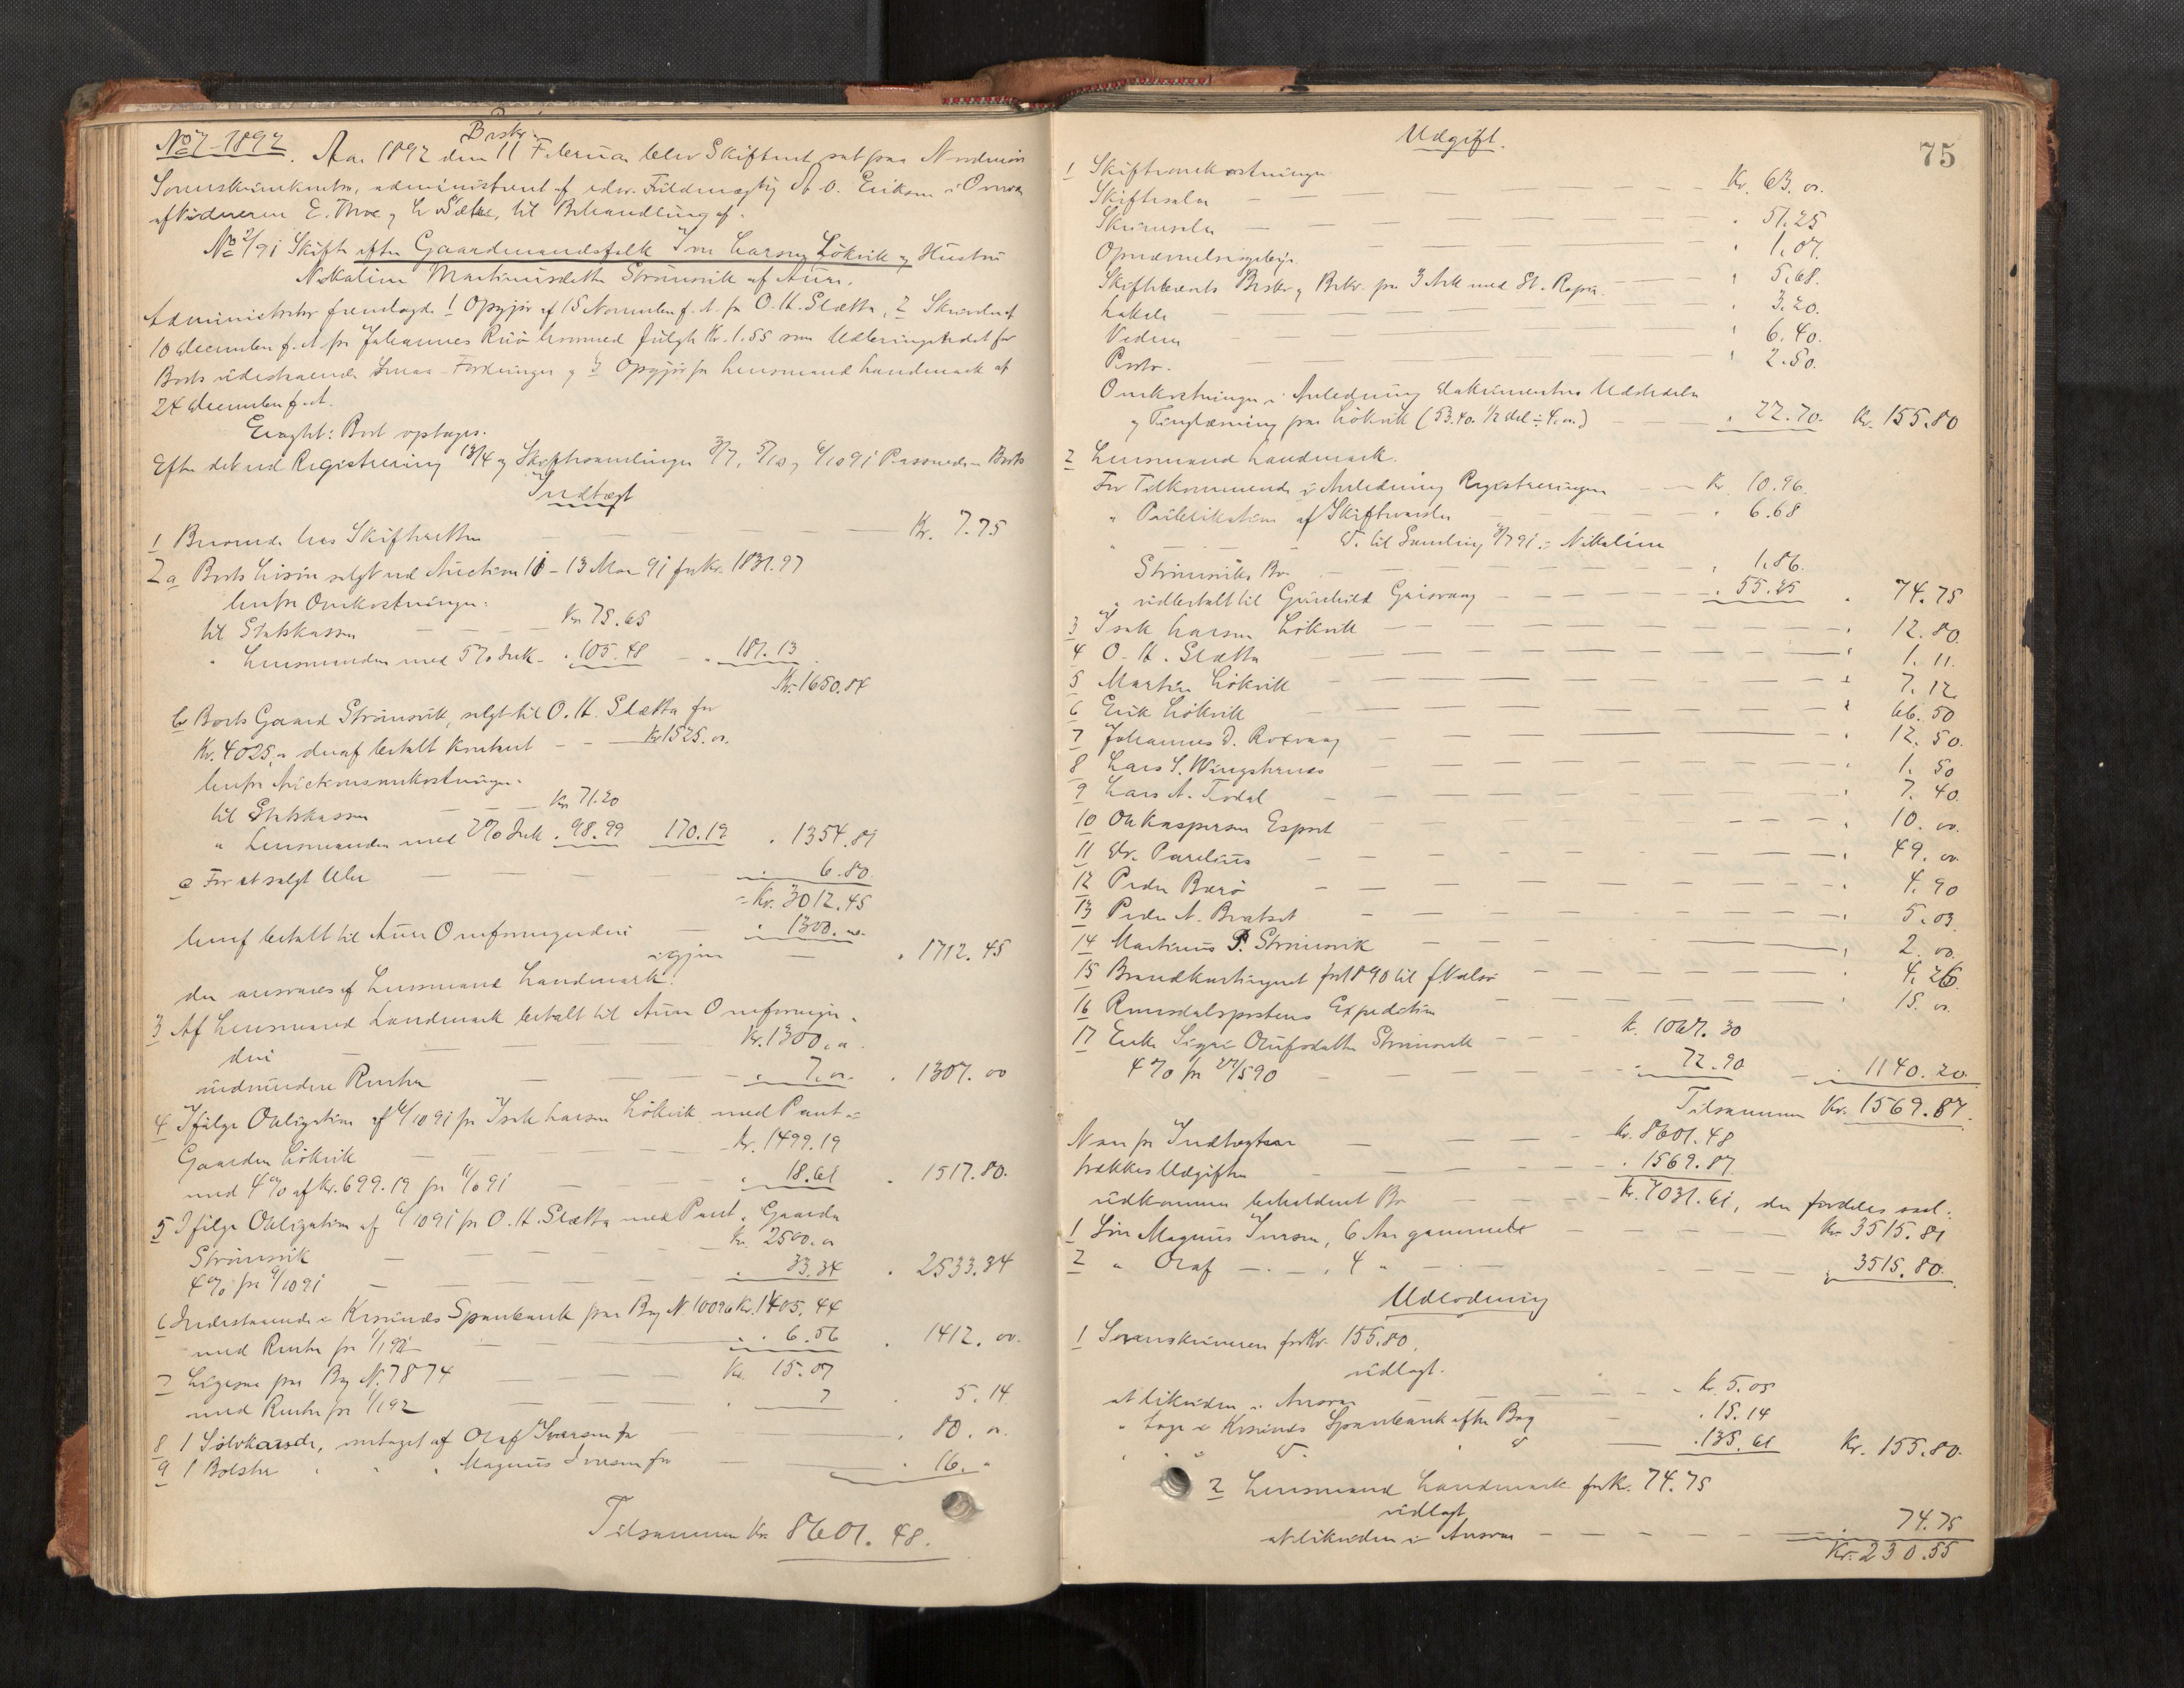 No 7 - 1892. Beskr.
Aar 1892 den 11 Februar blev Skifteret sat paa Nordmøre
Sorenskriverkontor, administreret af edsv. Fuldmægtig A. O. Erikson i Overvær
af Vidnerne E. Moe og L. Sæther, til Behandling af:
No 2/91 Skifte efter Gaardmandsfolk Iver Larsen Lökvik og Hustru
Nikoline Martinusdatter Strömsvik af Aure.
Administrator fremlagde 1 Opgjör af 15 November f. A. fra O. H. Slætta, 2 Skrivelse af
10 December f. A. fra Johannes hvormed fulgte Kr. 1.55 som Udbringendet for
Boets udestaaende Smaa-Fordringer og 3 Opgjör fra Lensmand Landmark af
24 December f. A.
Eragtet: Boet optages.
Efter det ved Registrering 13/4 og Skiftesamlinger 3/7, 5/10 og 6/10 91 Passerede er Boets
Indtægt
1 Beroende hos Skifteretten Kr. 7.75
2 a Boets Lösöre solgt ved Auction 11 - 13 Mai 91 for Kr. 1831.97
herfra Omkostninger:
til Statskassen Kr. 75.65
" Lensmanden med 5% Ink. " 105.48 " 181.13
Kr. 1650.84
b Boets Gaard Strömsvik, solgt til O. H. Slætta for
Kr. 4025, " deraf betalt kontant Kr 1525. oo.
herfra Auctionsomkostninger:
til Statskassen Kr. 71.20
" Lensmanden med 2% Ink. " 98.99 170.19 " 1354.81
c For et solgt Uhr 6.80.
= Kr. 3012.45
heraf betalt til Aure Overformynderi " 1300. oo.
igjen " 1712.45
der ansvares af Lensmand Landmark.
3 Af Lensmand Landmark betalt til Aure Overformyn-
deri Kr. 1300. oo.
medmindre Renter " 7. oo. " 1307. oo
4 Ifölge Obligation af 6/10 91 fra Isak Larsen Lökvik med Pant i
Gaarden Lökvik Kr. 1499.19
med 4% af Kr. 699.19 fra 6/6 91 18.61 " 1517.80.
5 Ifölge Obligation af 6/10 91 fra O. H. Slætta med Pant i Gaarden
Strömsvik Kr. 2500. oo
4% fra 6/10 91 " 33.34 " 2533.34
6 Indestaaende i Krsunds Sparebank paa Bog N. 10096 Kr. 1405.44
med Renter fra 1/1 92 " 6.56 " 1412. oo.
7 Ligesaa paa Bog N. 7874 Kr. 15.07
med Renter fra 1/1 92 " 7 " 5.14
8 1 modtaget af Olaf Iversen for " 80. oo.
9 1 Bolster " " " Magnus Iversen for " 16. "
Tilsammen Kr. 8601.48.
75
Udgift.
1 Skifteomkostninger
Skiftesalær Kr. 63. oo.
Skriversalær " 51.25
Opnævnelsesgebyr " 1.07.
Skifterets Beskr. og Bekr. paa 3 Ark med St. Papir " 5.68.
Lakade " 3.20.
Vidner " 6.40.
Porto. " 2.50.
Omkostninger i Anledning Dokumenters Udstedelse
og Tinglæsning paa Lökvik (53.40. 1/2 del ÷ 4. oo.) " 22.70. Kr. 155.80
2 Lensmand Landmark.
For Tilkommende i Anledning Registreringen Kr. 10.96.
" Publikation af Skiftevarsler " 6.68
" D. til Samling 3/7 91 i Nikoline
Strömsviks Bo. " 1.86.
" udbetalt til Gunhild Grisvaag " 55.25 " 74.75
3 Isak Larsen Lökvik " 12.80.
4 O. H. Slætta " 1.11.
5 Martin Lökvik " 7.12.
6 Erik Lökvik " 66.50
7 Johannes D. Roxvaag " 12.50.
8 Lars S. Wingsternes " 1.50
9 Lars A. Todal " 7.40.
10 Ole Kaspersen Espset " 10. oo.
11 Dr. Parelius " 49. oo.
12 Peder Bærö " 4.90
13 Peder A. Brætset " 5.03.
14 Martinus P. Strömsvik " 2. oo.
15 Brandkontingent for 1890 til f. Valsö " 4.26.
16 Romsdalspostens Expedition " 15. oo.
17 Enke Sigri Olufsdatter Strömsvik Kr. 1067.30
4% fra 27/5 90 " 72.90 " 1140.20.
Tilsammen Kr. 1569.87.
Naar fra Indtægterne Kr. 8601.48
trækkes Udgiften " 1569.87
udkommer beholdent Bo Kr. 7031.61, der fordeles saal:
1 Sön Magnus Iversen, 6 Aar gammel Kr. 3515.81
2 " Olaf — " — , 4 " — " — 3515.80.
Udlodning
1 Sorenskriveren for Kr. 155.80.
udlagt.
at likvidere i Ansvar Kr. 5.05
" tage i Krsunds Sparebank efter Bog " 15.14
" " " D. " D " 135.61 Kr. 155.80.
2 Lensmand Landmark for Kr. 74.75
udlagt
at likvidere i Ansvar " 74.75
Kr. 230.55